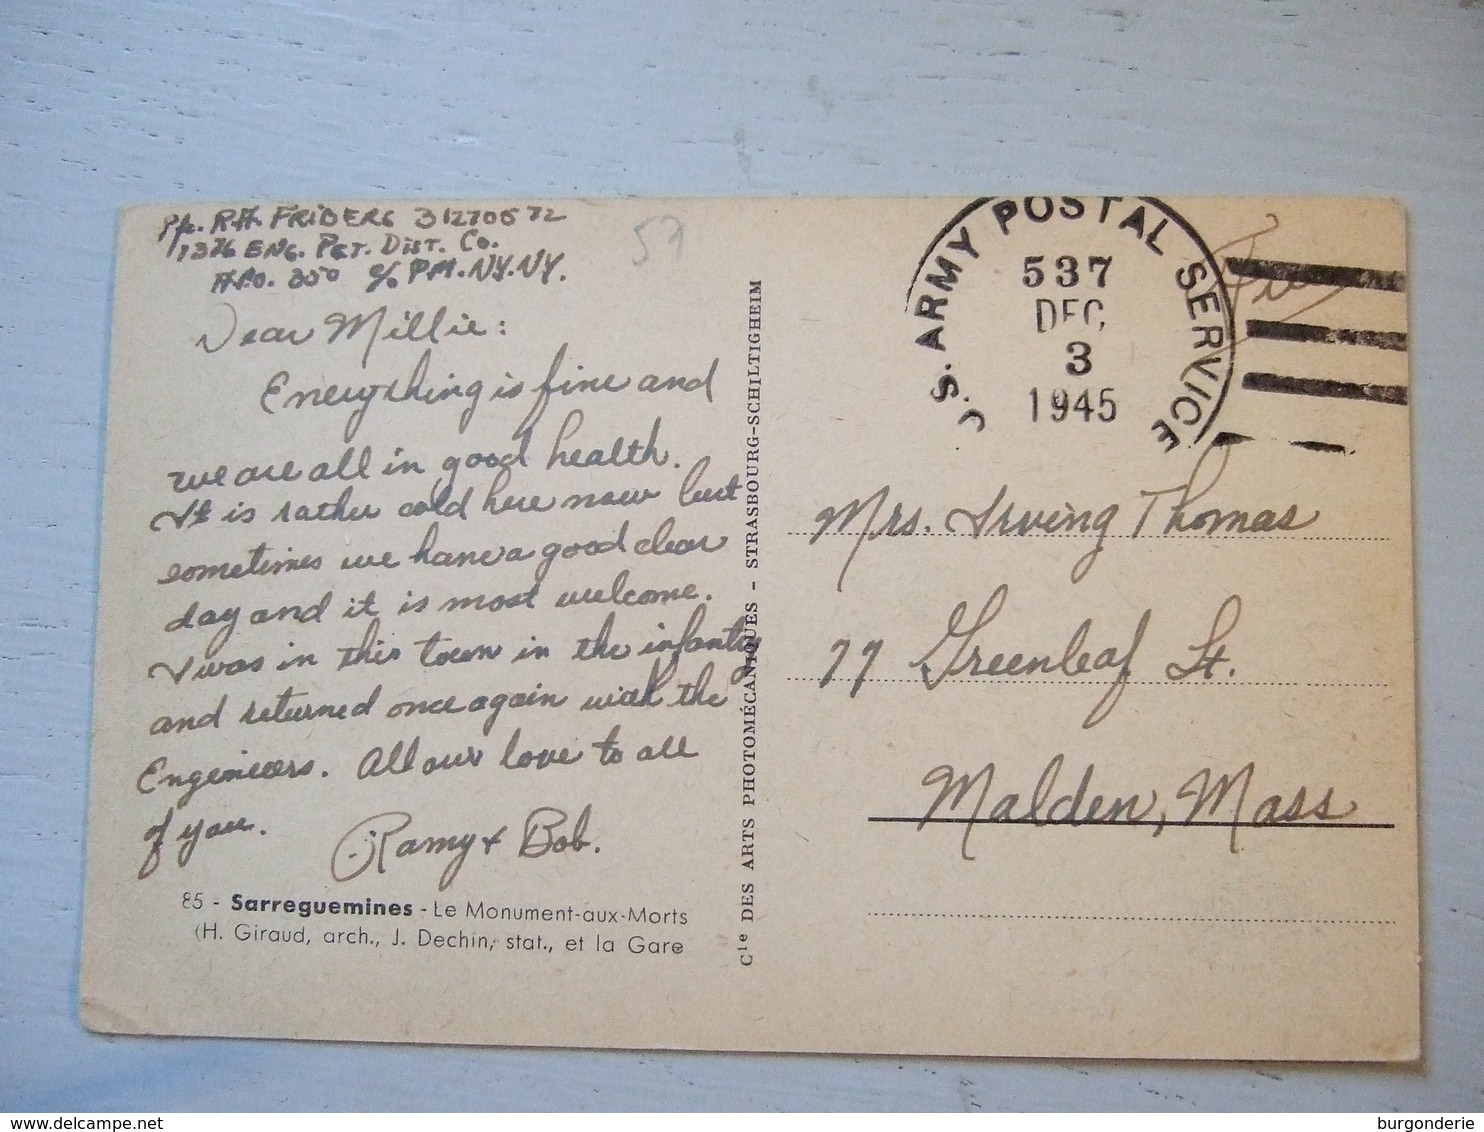 Pfc. R.H. FRIBERG 31270572
1376 ENG. PET. DIST. CO.
A.P.O. 350 c/o P.M. N.Y. N.Y.
57
Dear Millie:
Everything is fine and
we are all in good health.
It is rather cold here now but
sometimes we have a good clear
day and it is most welcome.
I was in this town in the infantry
and returned once again with the
Engineers. All our love to all
of you.
Ramy + Bob.
85 - Sarreguemines - Le Monument-aux-Morts
(H. Giraud, arch., J. Dechin, stat., et la Gare
Cie DES ARTS PHOTOMÉCANIQUES - STRASBOURG-SCHILTIGHEIM
U.S. ARMY POSTAL SERVICE
537
DEC
3
1945
Free
Mrs. Irving Thomas
77 Greenleaf St.
Malden, Mass
www.delcampe.net
burgonderie